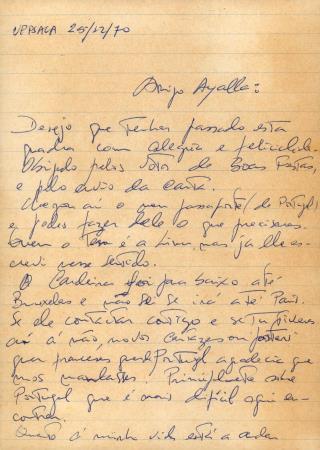 UPPSALA 25/12/70
Amigo Ayalla:
Desejo que tenhas passado esta
quadra com alegria e felicidade.
Obrigado pelos votos de Boas Festas,
e pelo envio da carta.
Chegou aí o meu passaporte (de Portugal)
e podes fazer dele o que precisares.
Quem o tem é a mas já lhe es-
crevi nesse sentido.
O Cardeira foi para baixo até
Bruxelas e não sei se irá até Paris.
Se ele contactar contigo e se tu tiveres
aí à mão, novos cartazes ou
que mandasses. Principalmente sobre
Portugal que é mais difícil aqui en-
contrar.
Quanto à minha vida está a andar